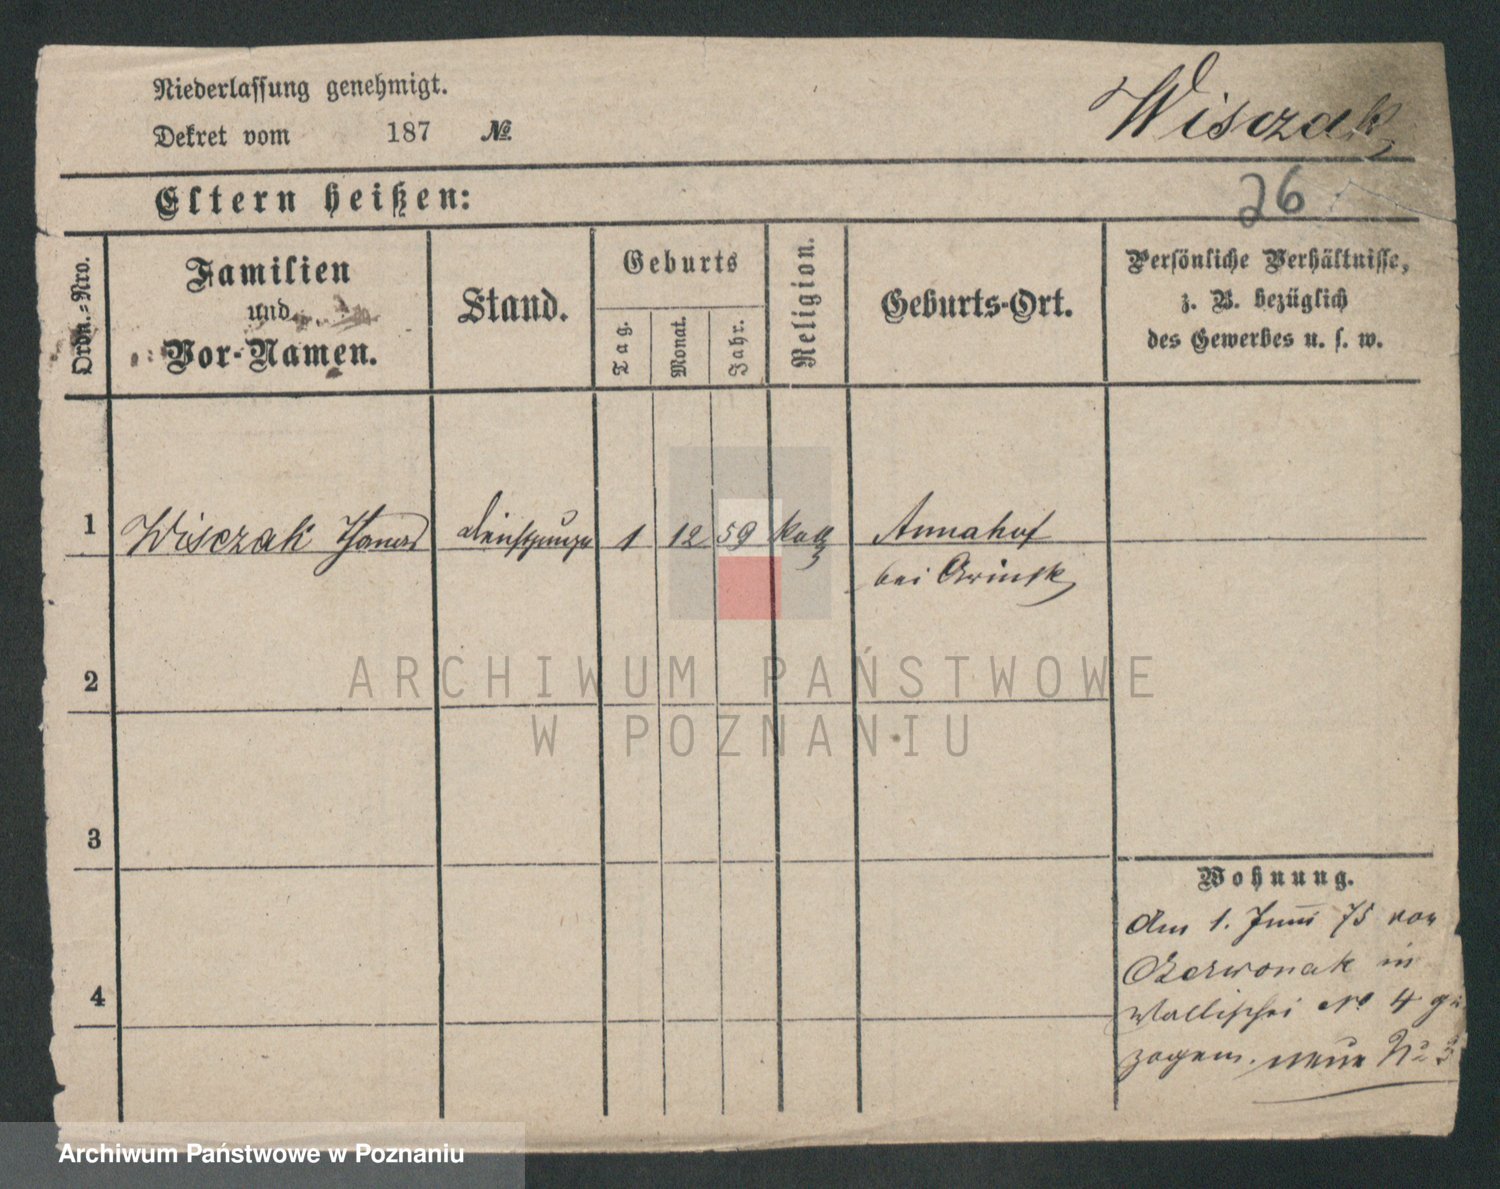 Niederlassung genehmigt.
Wisczak
Dekret vom 187 №
26
Eltern heißen:
Ordn.-Nro.
Familien
und
Vor-Namen.
Stand.
Geburts
Tag.
Monat.
Jahr.
Religion.
Geburts-Ort.
Persönliche Verhältnisse,
z. B. bezüglich
des Gewerbes u. s. w.
1 Wisczak Dienstjunge 1 12 59 Kath Annahof
bei
2
3
4
Wohnung.
Am 1. Juni 75 von
Czerwonak in
Wallischei No 4 ge
zogen. neue No 3
ARCHIWUM PAŃSTWOWE
W POZNANIU
Archiwum Państwowe w Poznaniu